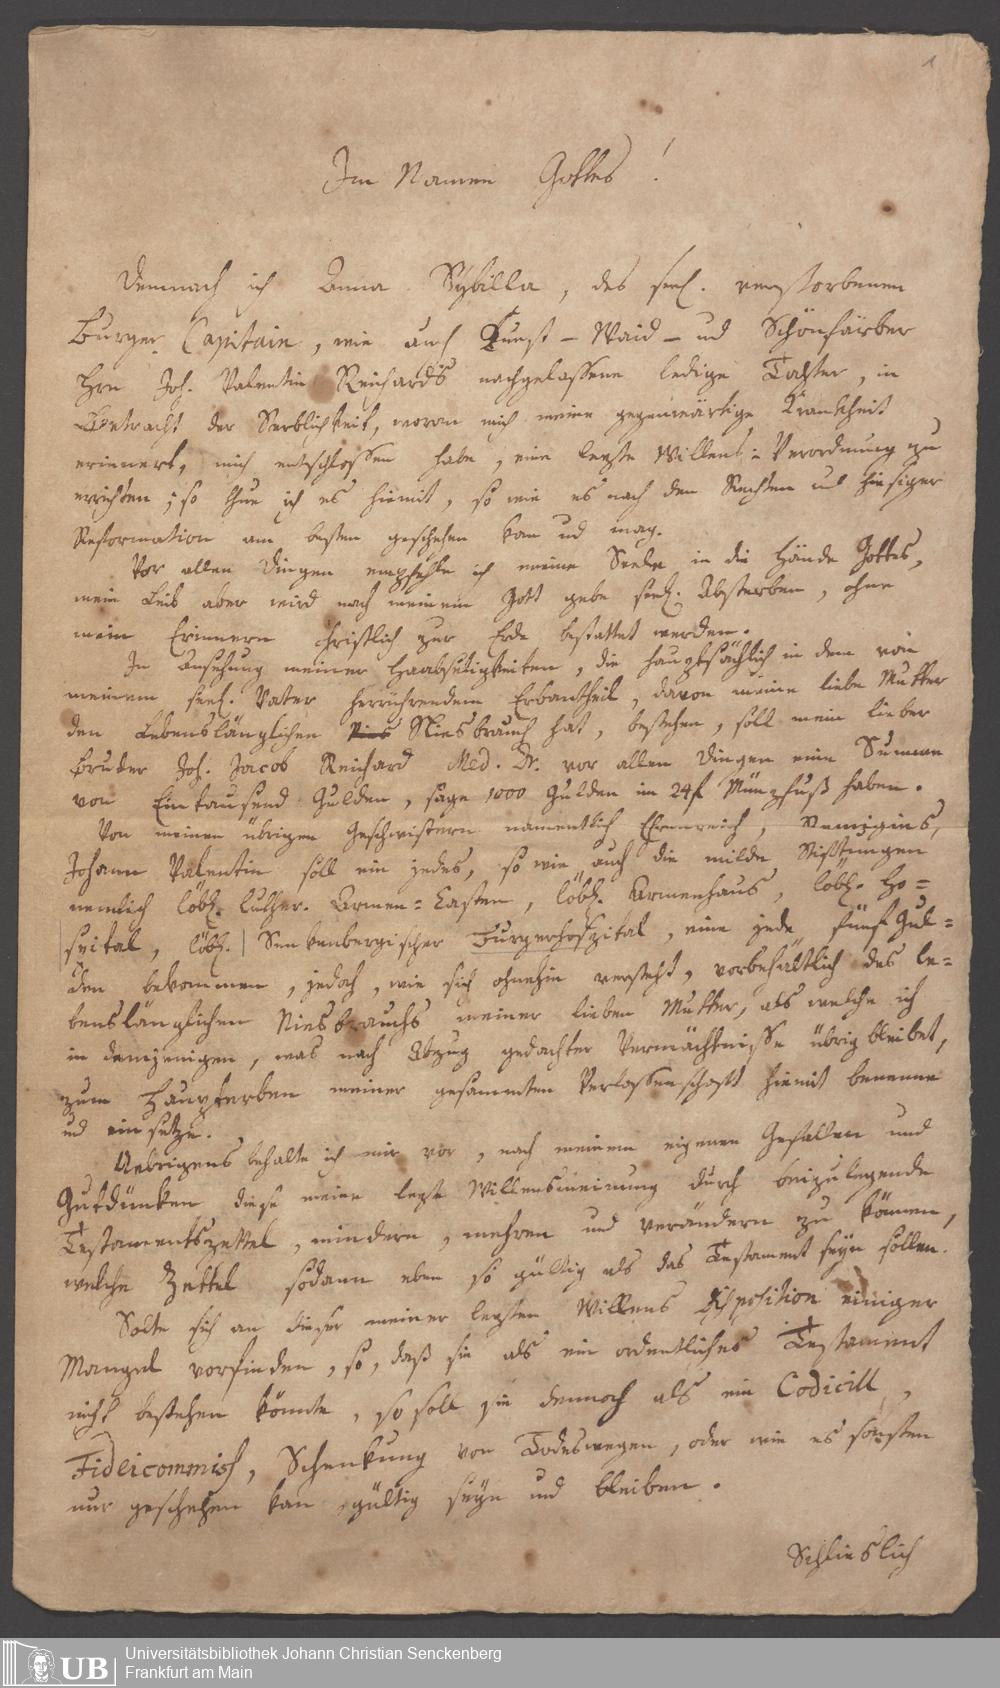 1
Im Namen Gottes!
Demnach ich Anna Sybilla, des seel. verstorbenen
Burger Capitain, wie auch Kunst- Waid- ud Schönfärber
Hrn Joh. Valentin Reichards nachgelassene ledige Tochter, in
Betracht der Sterblichkeit, woran mich meine gegenwärtige Krankheit
erinnert, mich entschlossen habe, eine lezte Willens-Verordnung zu
errichten; so thue ich es hiemit, so wie es nach den Rechten ud hiesiger
Reformation am besten geschehen kan ud mag.
Vor allen Dingen empfehle ich meine Seele in die Hände Gottes,
mein Leib aber wird nach meinem Gott gebe seel. Absterben, ohne
mein Erinnern christlich zur Erde bestattet werden.
In Ansehung meiner Haabseligkeiten, die hauptsächlich in dem von
meinem seel. Vater herrührendem Erbantheil, davon meine liebe Mutter
den Lebenslänglichen Niesbrauch hat, bestehen, soll mein lieber
Bruder Joh. Jacob Reichard Med. Dr. vor allen Dingen eine Summe
von Eintausend Gulden, sage 1000 Gulden im 24f Münzfuß haben.
Von meinen übrigen Geschwistern namentlich Ehrenreich, Remigius,
Johann Valentin soll ein jedes, so wie auch die milde Stiftungen
nemlich löbl. Luther. Armen-Casten, löbl. Armenhaus, löbl. Ho=
spital, löbl. Senkenbergischer Burgerhospital, eine jede fünf Gul=
den bekommen, jedoch, wie sich ohnehin versteht, vorbehältlich des le=
benslänglichen Niesbrauchs meiner lieben Mutter, als welche ich
in demjenigen, was nach Abzug gedachter Vermächtnisse übrig bleibet,
zum Haupterben meiner gesammten Verlassenschaft hiemit benenne
ud einsetze.
Uebrigens behalte ich mir vor, nach meinem eigenen Gefallen und
Gutdünken diese meine lezte Willensmeinung durch beizulegende
Testamentszettel, mindern, mehren und verändern zu können,
welche Zettel sodann eben so gültig als das Testament seyn sollen.
Solte sich an dieser meiner lezten Willens Disposition einiger
Mangel vorfinden, so, daß sie als ein ordentliches Testament
nicht bestehen könnte, so soll sie dennoch als ein Codicill,
Fideicommiss, Schenkung von Todeswegen, oder wie es sonsten
nur geschehen kan gültig seyn und bleiben.
Schlieslich
UB
Universitätsbibliothek Johann Christian Senckenberg
Frankfurt am Main